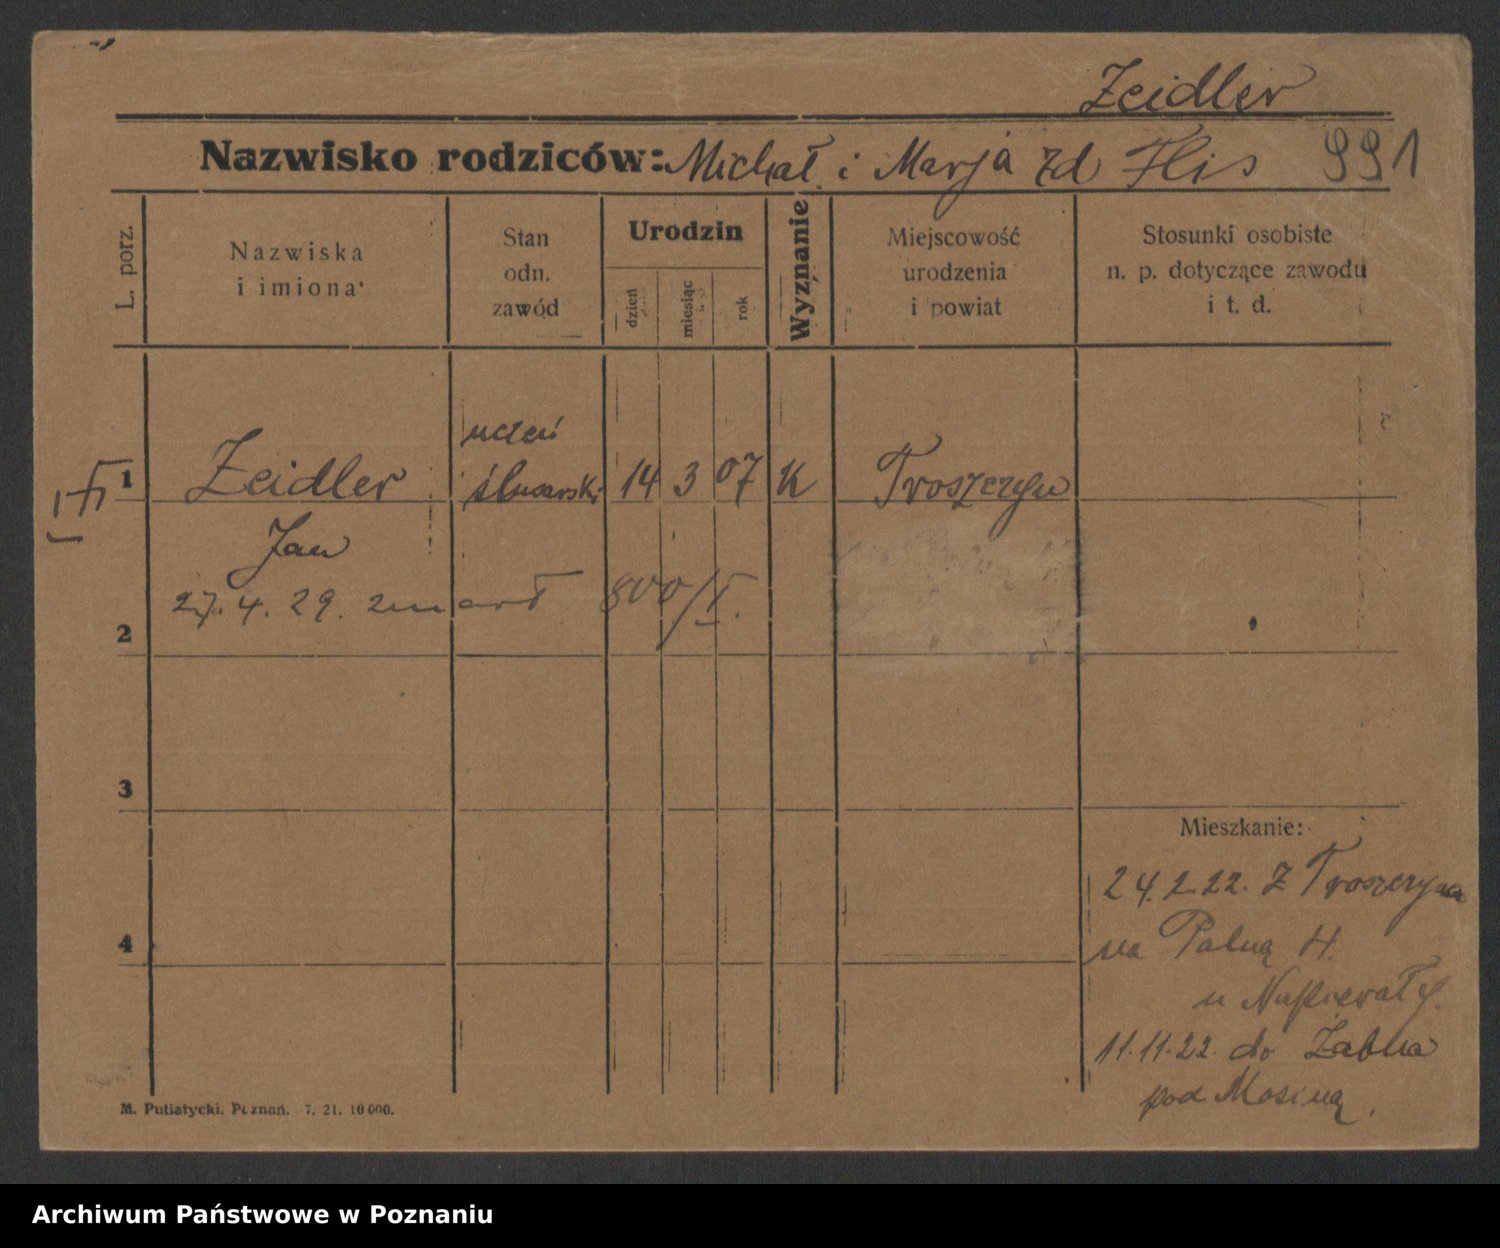 Zeidler
Nazwisko rodziców: Michał i Marja zd Flis 991
L. porz.
Nazwiska
i imiona
Stan
odn.
zawód
Urodzin
dzień
miesiąc
rok
Wyznanie
Miejscowość
urodzenia
i powiat
Stosunki osobiste
n. p. dotyczące zawodu
i t. d.
uczeń
1 Zeidler ślusarski 14 3 07 K Troszczyn
Jan
27.4.29. zmarł 800/I.
2
3
Mieszkanie:
24.2.22. z Troszczyna
4
na Polną 4.
u Napierały.
11.11.22. do Żabna
pod Mosiną.
M. Putiatycki. Poznań. 7. 21. 10 000.
Archiwum Państwowe w Poznaniu